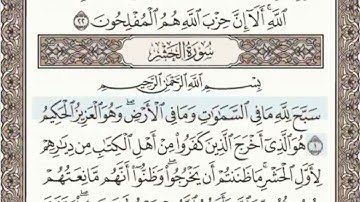 ٱللَّهِۚ أَلَآ إِنَّ حِزْبَ ٱللَّهِ هُمُ ٱلْمُفْلِحُونَ ٢٢
سُورَةُ الحَشْرِ
بِسْمِ ٱللَّهِ ٱلرَّحْمَٰنِ ٱلرَّحِيمِ
سَبَّحَ لِلَّهِ مَا فِى ٱلسَّمَٰوَٰتِ وَمَا فِى ٱلْأَرْضِۖ وَهُوَ ٱلْعَزِيزُ ٱلْحَكِيمُ
١ هُوَ ٱلَّذِىٓ أَخْرَجَ ٱلَّذِينَ كَفَرُوا۟ مِنْ أَهْلِ ٱلْكِتَٰبِ مِن دِيَٰرِهِمْ
لِأَوَّلِ ٱلْحَشْرِۚ مَا ظَنَنتُمْ أَن يَخْرُجُوا۟ۖ وَظَنُّوٓا۟ أَنَّهُم مَّانِعَتُهُمْ